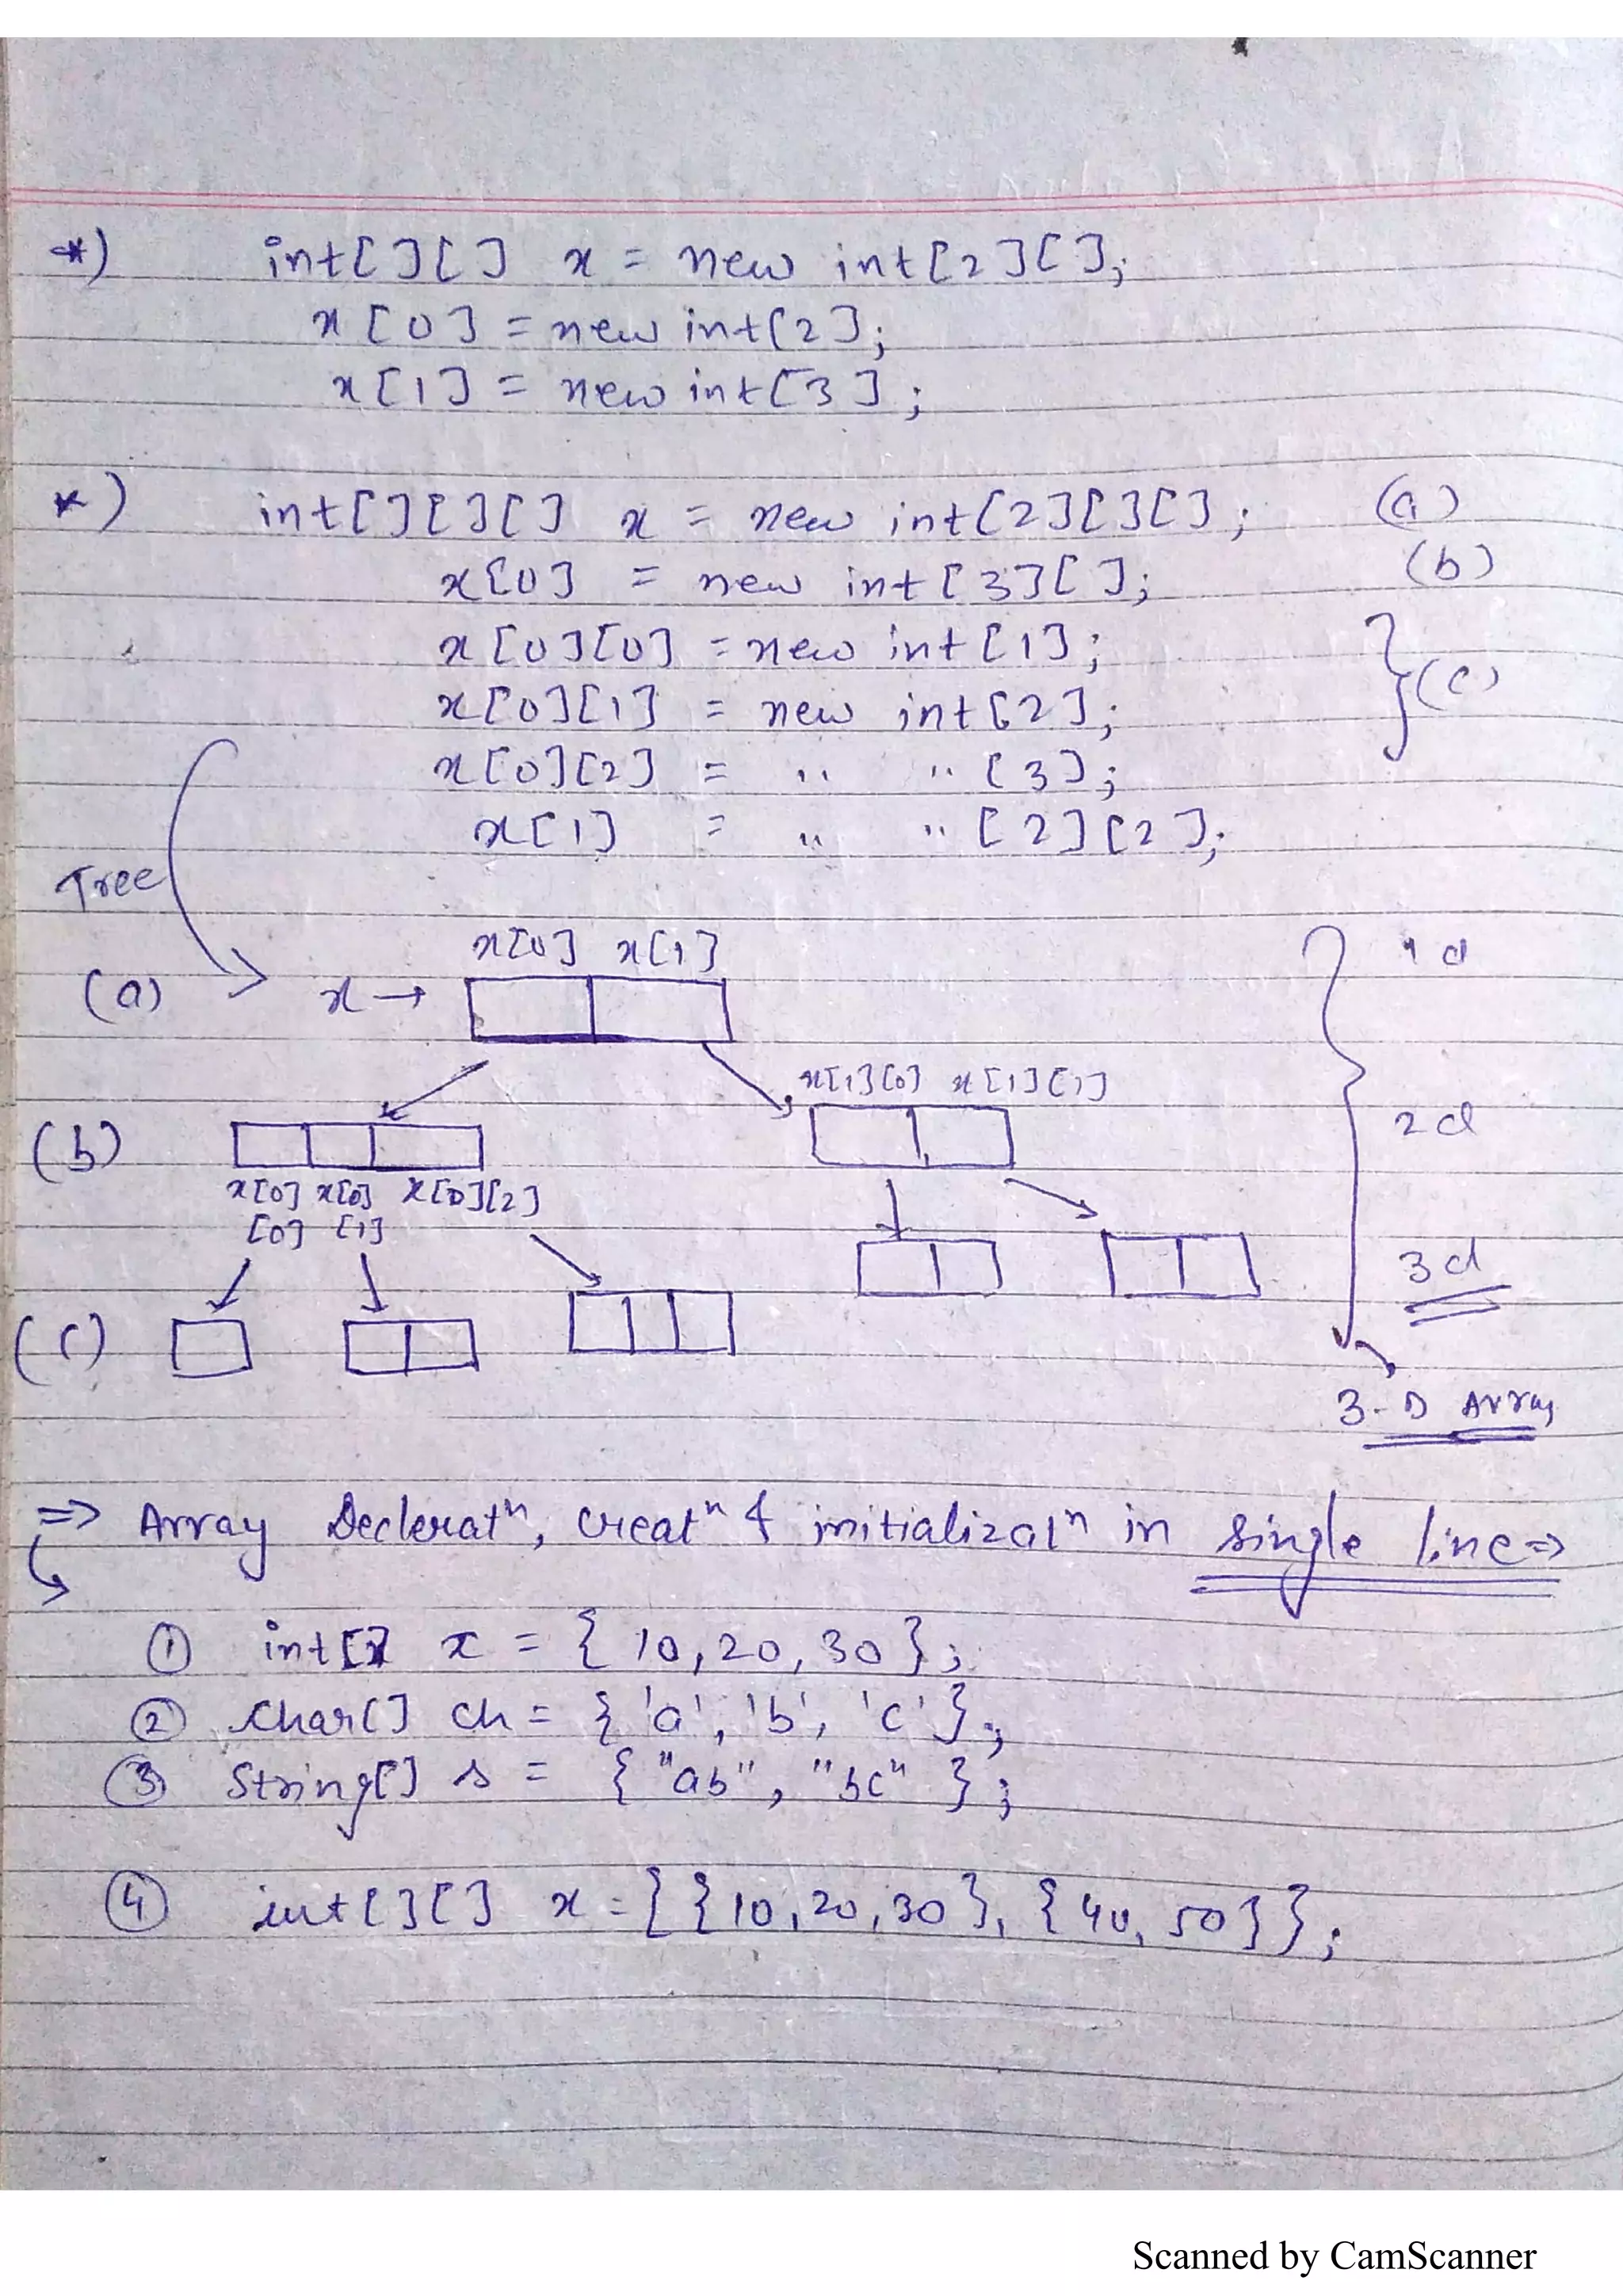 *) int[][] x = new int[2][];
x[0] = new int[2];
x[1] = new int[3];
*) int[][][] x = new int[2][][]; (a)
x[0] = new int[3][]; (b)
x[0][0] = new int[1];
x[0][1] = new int[2]; } (c)
x[0][2] = " " [3];
x[1] = " " [2][2];
Tree
x[0] x[1] 1d
(a) x →
x[1][0] x[1][1]
(b) 2d
x[0] x[0] x[0][2]
[0] [1]
3d
(c)
3-D Array
=> Array Decleratⁿ, creatⁿ & initializatⁿ in single line =>
① int[] x = { 10, 20, 30 };
② char[] ch = { 'a', 'b', 'c' };
③ String[] s = { "ab", "bc" };
④ int[][] x = { {10, 20, 30}, {40, 50} };
Scanned by CamScanner